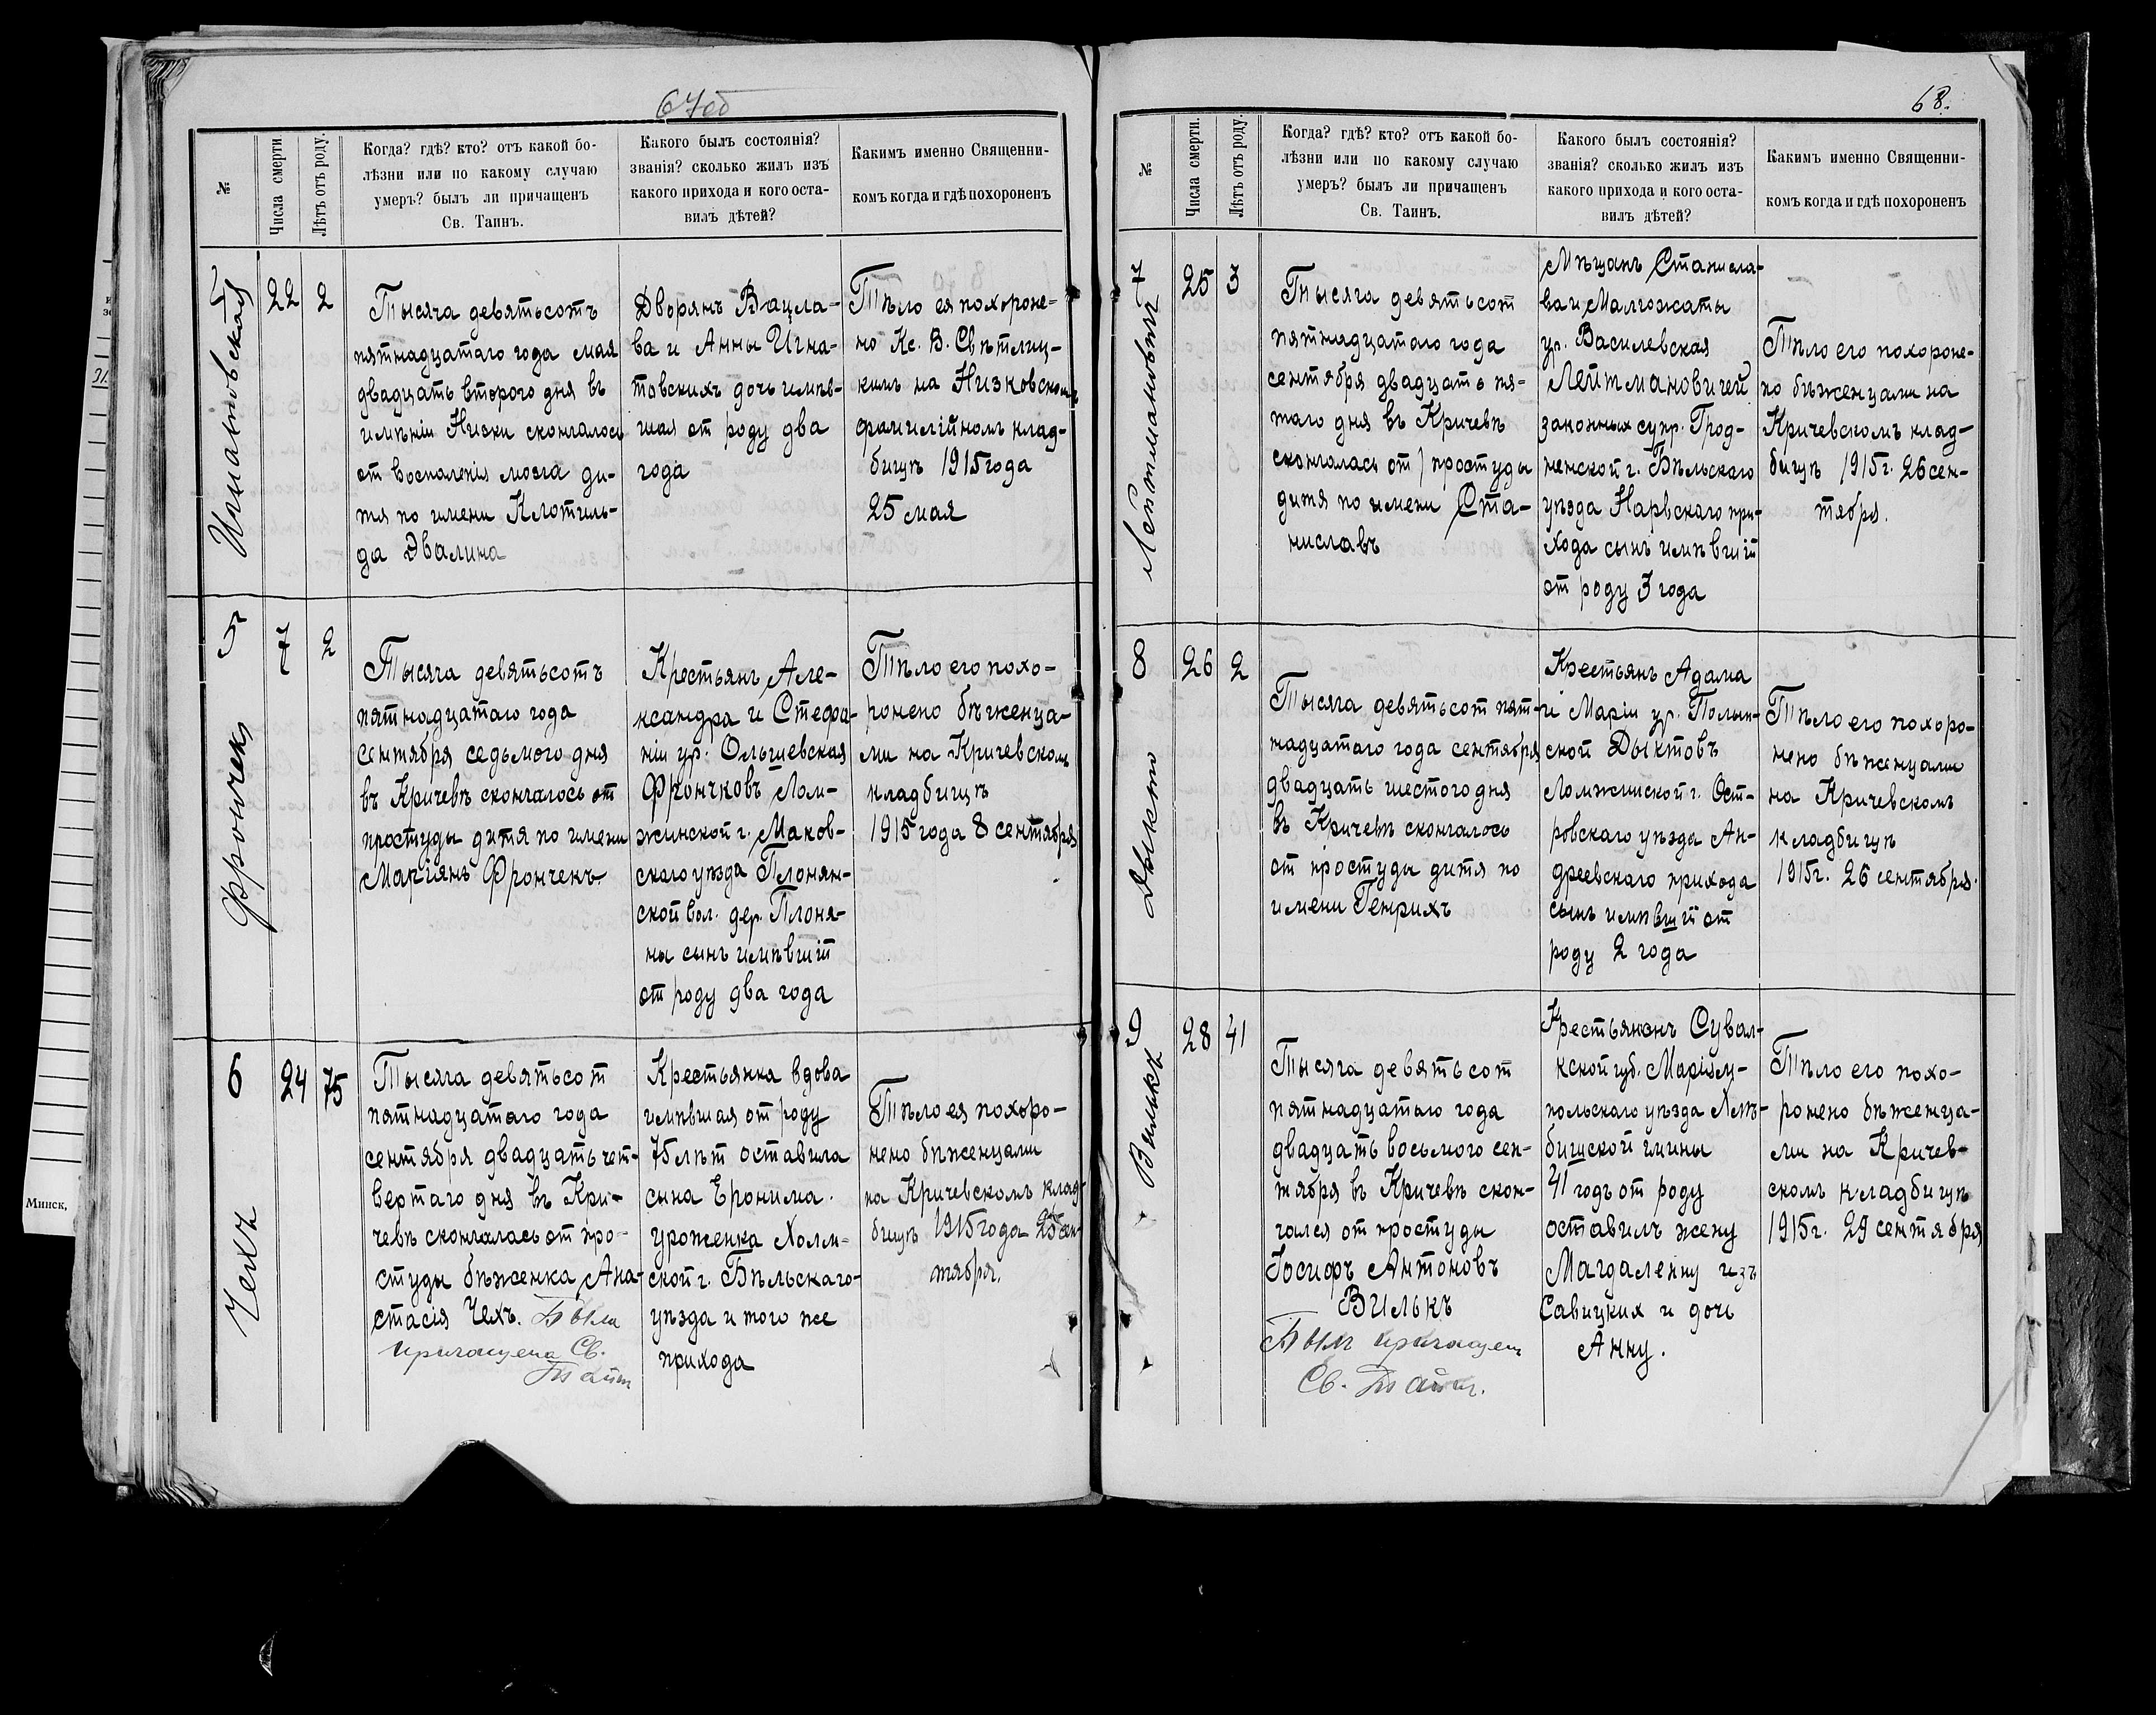 67об
№
Числа смерти.
Лѣтъ отъ роду.
Когда? гдѣ? кто? отъ какой бо-
лѣзни или по какому случаю
умеръ? былъ ли причащенъ
Св. Таинъ.
Какого былъ состоянія?
званія? сколько жилъ изъ
какого прихода и кого оста-
вилъ дѣтей?
Какимъ именно Священни-
комъ когда и гдѣ похороненъ
Игнатовская
22
2
Тысяча девятьсотъ
пятнадцатаго года мая
двадцать второго дня въ
имѣніи Низки скончалось
от воспаленія мозга ди-
тя по имени Клотиль-
да Эвалина
Дворянъ Вацла-
ва и Анны Игна-
товскихъ дочь имѣв-
шая от роду два
года
Тѣло ея похороне-
но Кс. В. Свѣтлиц-
кимъ на Низковскомъ
фамилійномъ клад-
бищѣ 1915 года
25 мая
5
Фрончекъ
7
2
Тысяча девятьсотъ
пятнадцатаго года
сентября седьмого дня
въ Кричевѣ скончалось от
простуды дитя по имени
Маріянъ Фрончекъ
Крестьянъ Але-
ксандра и Стефа-
ніи ур. Ольшевская
Фрончковъ Лом-
жинской г. Маков-
скаго уѣзда Плонян-
ской вол. дер. Плоня-
ны сынъ имѣвшій
от роду два года
Тѣло его похо-
ронено бѣженца-
ми на Кричевскомъ
кладбищѣ
1915 года 8 сентября
6
Чехъ
24
75
Тысяча девятьсот
пятнадцатаго года
сентября двадцать чет-
вертаго дня въ Кри-
чевѣ скончалась от про-
студы бѣженка Ана-
стасія Чехъ. Была
причащена Св.
Тайн
Крестьянка вдова
имѣвшая от роду
75 лѣт оставила
сына Еронима.
уроженка Холм-
ской г. Бѣльскаго
уѣзда и того же
прихода
Тѣло ея похоро-
нено бѣженцами
на Кричевскомъ клад-
бищѣ 1915 года 25 сен-
тября.
68.
№
Числа смерти.
Лѣтъ отъ роду.
Когда? гдѣ? кто? отъ какой бо-
лѣзни или по какому случаю
умеръ? былъ ли причащенъ
Св. Таинъ.
Какого былъ состоянія?
званія? сколько жилъ изъ
какого прихода и кого оста-
вилъ дѣтей?
Какимъ именно Священни-
комъ когда и гдѣ похороненъ
7
Лейтмановичъ
25
3
Тысяча девятьсот
пятнадцатаго года
сентября двадцать пя-
таго дня въ Кричевѣ
скончалась от простуды
дитя по имени Ста-
ниславъ
Мѣщанъ Станисла-
ва и Малгожаты
ур. Василевская
Лейтмановичей
законных супр. Грод-
ненской г. Бѣльскаго
уѣзда Нарвскаго при-
хода сынъ имѣвшій
от роду 3 года
Тѣло его похороне-
но бѣженцами на
Кричевскомъ клад-
бищѣ 1915 г. 26 сен-
тября.
8
Дыкто
26
2
Тысяча девятьсот пят-
надцатаго года сентября
двадцать шестого дня
въ Кричевѣ скончалось
от простуды дитя по
имени Генрихъ
Крестьянъ Адама
и Маріи ур. Полын-
ской Дыктовъ
Ломжинской г. Ост-
ровскаго уѣзда Ан-
дреевскаго прихода
сынъ имѣвшій от
роду 2 года
Тѣло его похоро-
нено бѣженцами
на Кричевскомъ
кладбищѣ
1915 г. 26 сентября.
9
Вилькъ
28
41
Тысяча девятьсот
пятнадцатаго года
двадцать восьмого сен-
тября въ Кричевѣ скон-
чался от простуды
Іосифъ Антоновъ
Вилькъ
Был причащен
Св. Тайн.
Крестьянонъ Сувал-
кской губ. Маріам-
польскаго уѣзда Хлѣ-
бишской гмины
41 годъ от роду
оставилъ жену
Магдаленну изъ
Савицких и дочь
Анну.
Тѣло его похо-
ронено бѣженца-
ми на Кричев-
скомъ кладбищѣ
1915 г. 29 сентября
Минск,